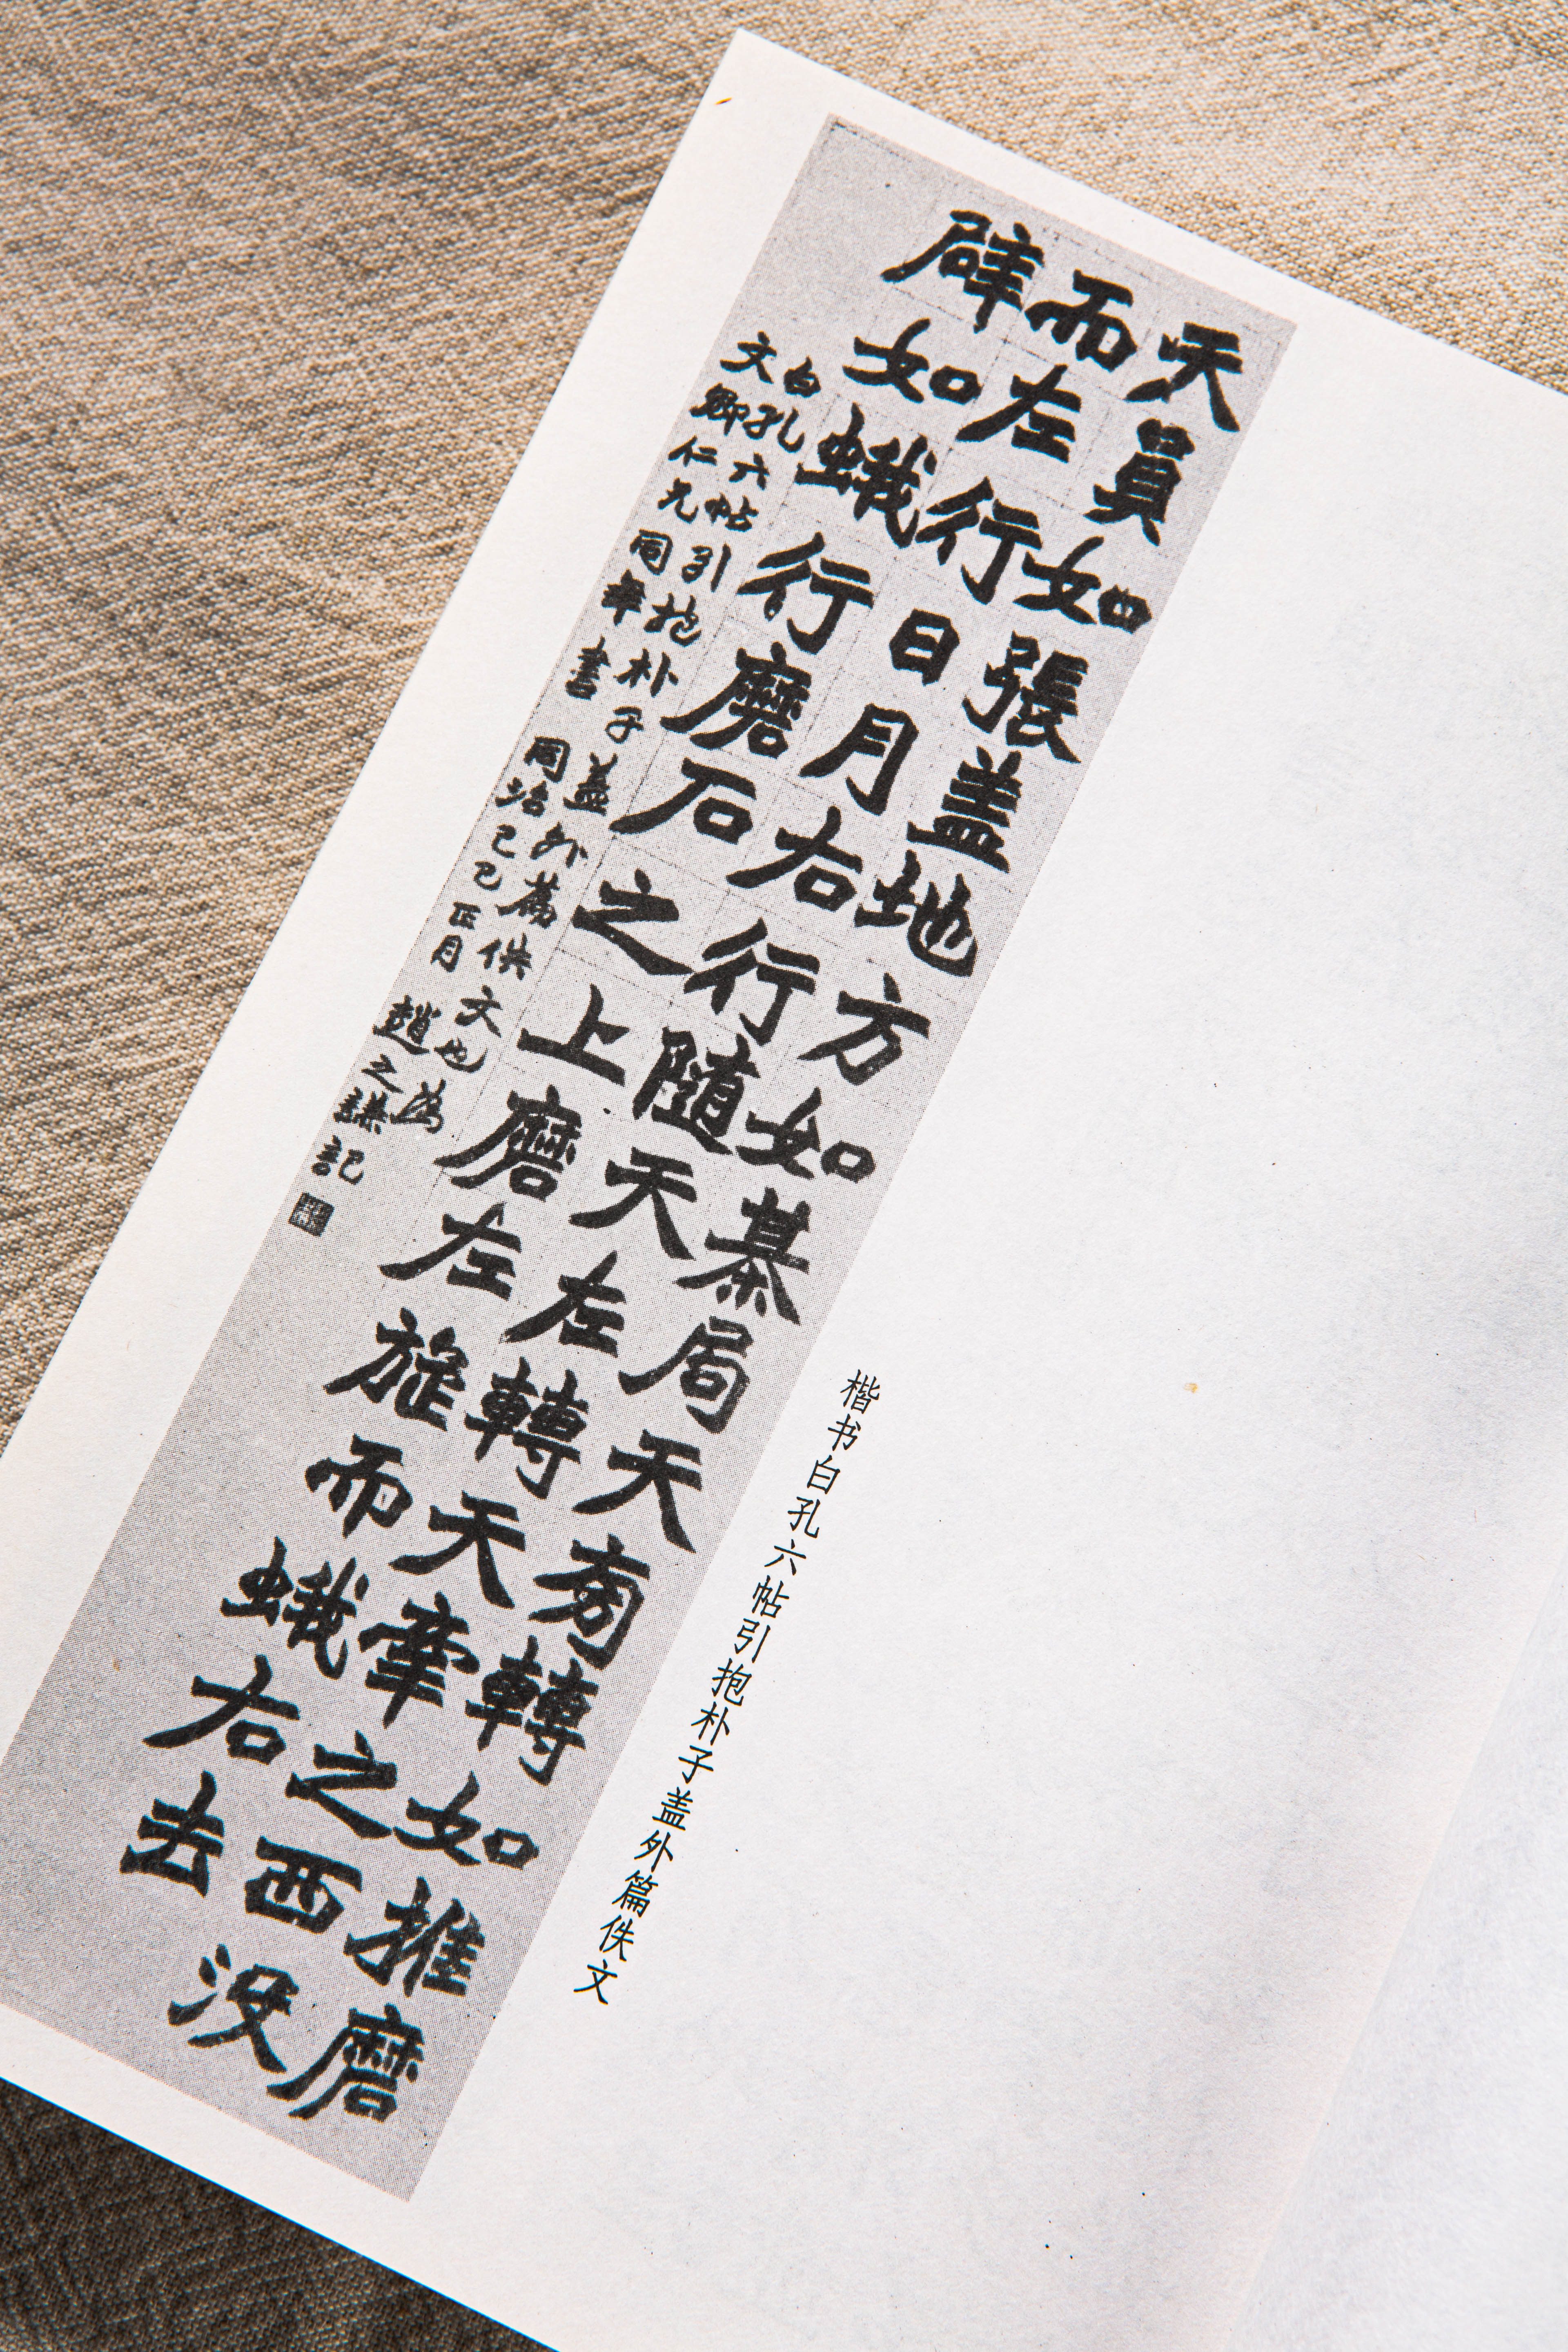 楷书白孔六帖引抱朴子盖外篇佚文
天員如張盖地方如棊局天旁轉如推磨
而左行日月右行隨天左轉天牽之西没
辟如蛾行磨石之上磨左旋而蛾右去
白孔六帖引抱朴子蓋外萹佚文也為
文卿仁兄同年書 同治己巳正月 趙之謙記